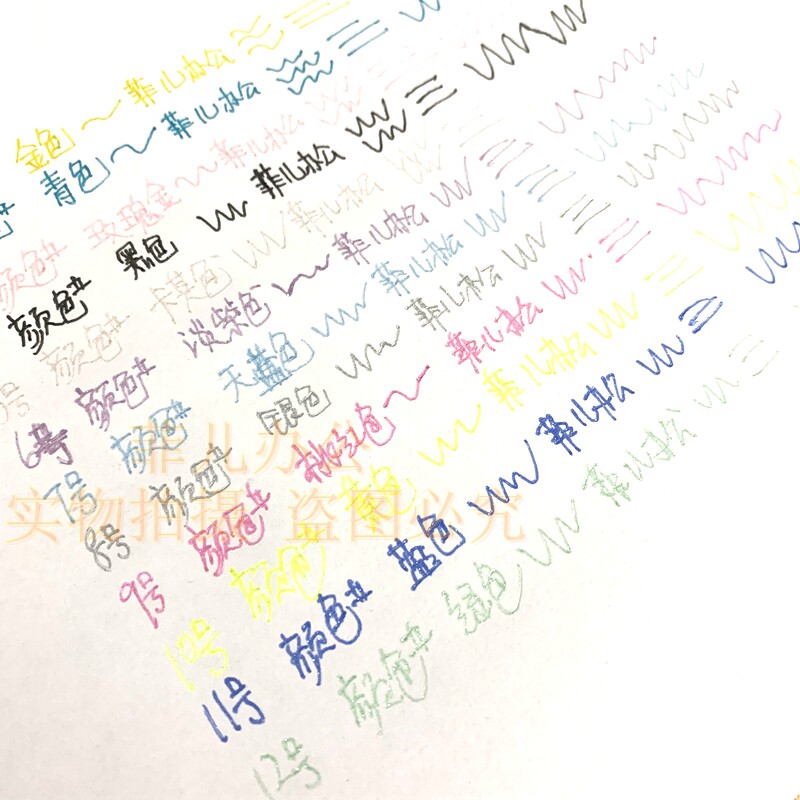 金色 菲儿办公
青色 菲儿办公
颜色# 玫瑰金 菲儿办公
颜色# 黑色 菲儿办公
号 颜色# 卡其色 菲儿办公
6号 颜色# 淡紫色 菲儿办公
7号 颜色# 天蓝色 菲儿办公
8号 颜色# 银色 菲儿办公
9号 颜色# 桃红色 菲儿办公
10号 颜色# 黄色 菲儿办公
11号 颜色# 蓝色 菲儿办公
12号 颜色# 绿色 菲儿办公
菲儿办公
实物拍摄 盗图必究